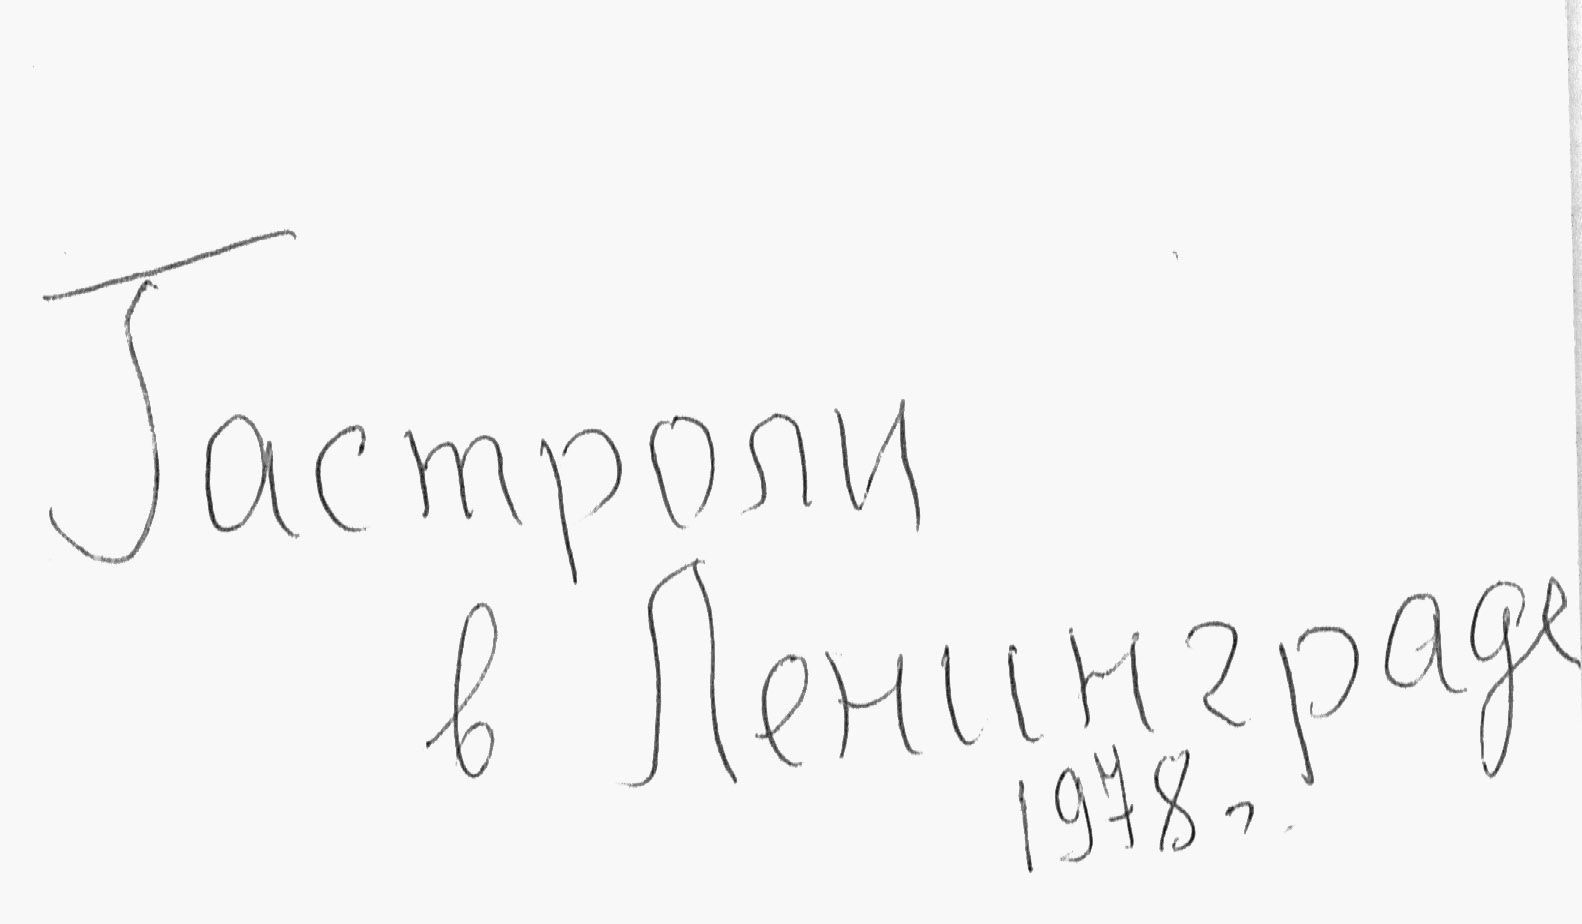 Гастроли
в Ленинграде
1978 г.